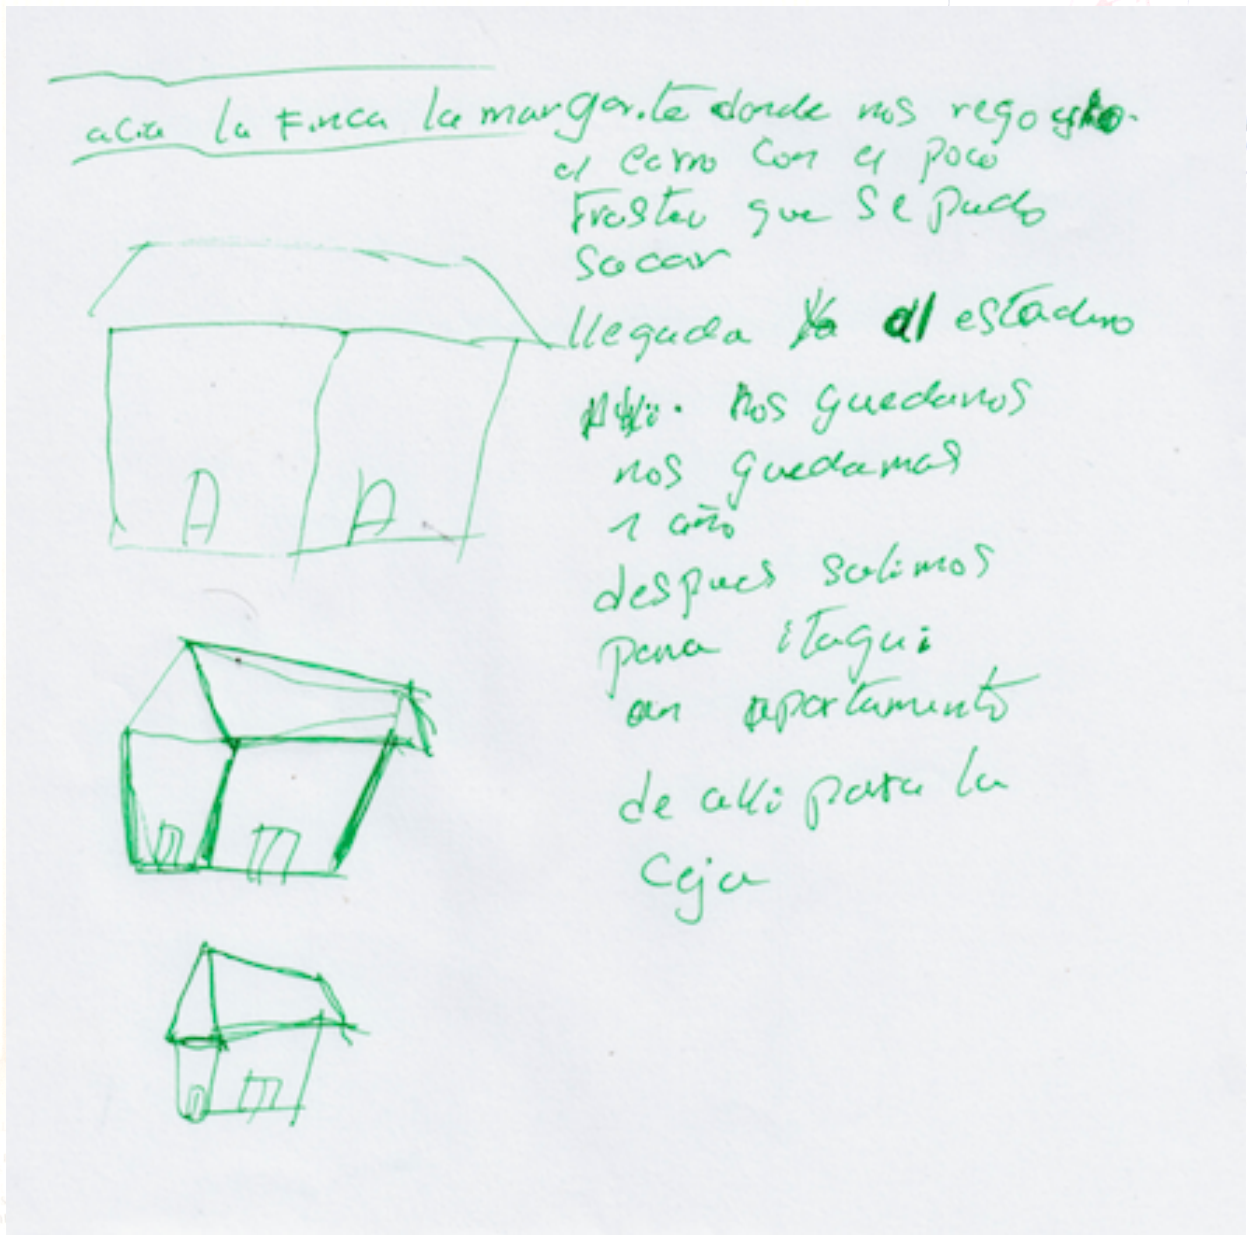 acia la Finca la margarita donde nos rego
el carro con el poco
Trasteo que se pudo
Sacar
llegada al estadero
nos quedanos
nos quedamos
1 año
despues salimos
para itagui
an apartamento
de alli para la
Ceja